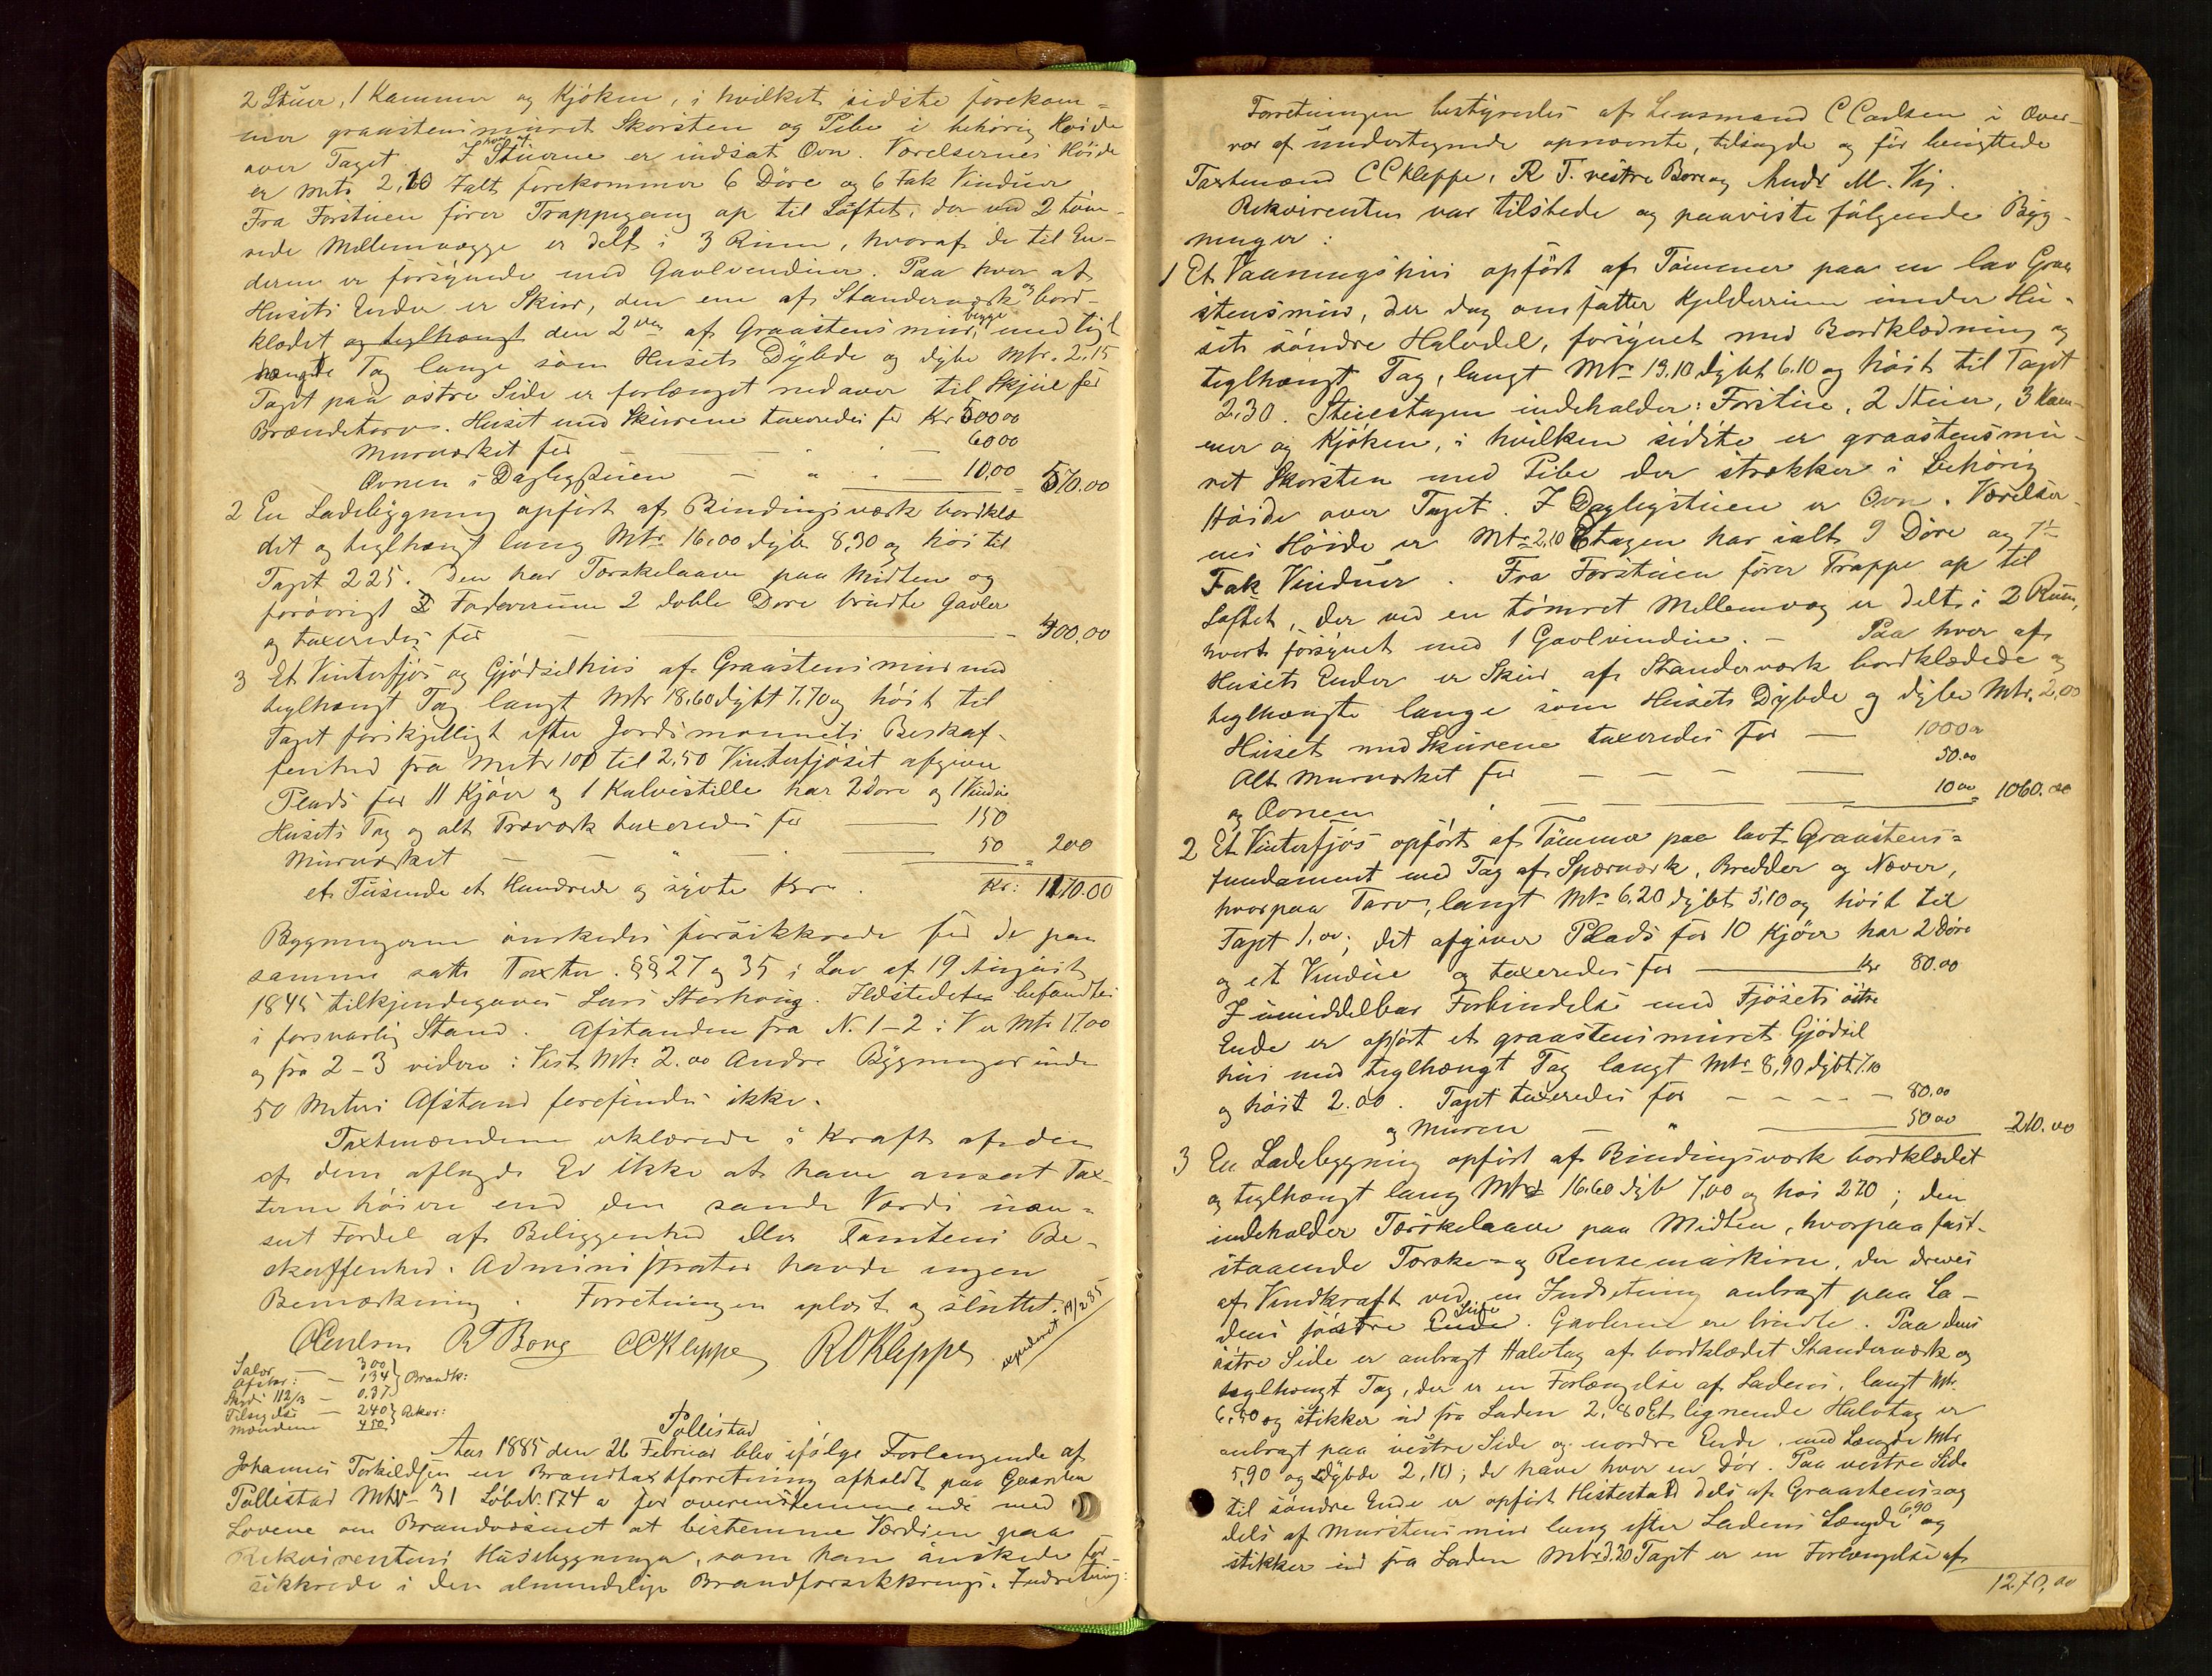 2 Stuer, 1 Kammer og Kjøken, i hvilket sidste forekom-
mer graastensmuret Skorsten og Pibe i behørig Høide
over Taget. I hver af Stuerne er indsat Ovn. Værelsernes Høide
er Mtr 2,20 Ialt forekommer 6 Døre og 6 Fak Vinduer
Fra Forstuen fører Trappegang op til Loftet, der ved 2 tøm-
rede Mellemvægge er delt i 3 Rum, hvoraf de til En-
derne er forsynede med Gavlvinduer. Paa hver af
Husets Ender er Skur, den ene af Standerværk og bord-
klædt og teglhængt den 2den af Graastensmur, begge med tegl
hængte Tag lange som Husets Dybde og dybe Mtr. 2.15
Taget paa østre Side er forlænget nedover til Skjul for
Brændetorv. Huset med Skurene taxeredes for Kr 500.00
Murværket for — 60.00
Ovnen i Dagligstuen — " — 10.00 = 570.00
2 En Ladebygning opført af Bindingsværk bordklæ-
det og teglhængt lang Mtr. 16.00 dyb 8,30 og høi til
Taget 2.25. Den har Tærskelaave paa Midten og
forøvrigt 2 Foderrum 2 doble Døre brudte Gavler
og taxeredes for — 400.00
3 Et Vinterfjøs og Gjødselhus af Graastensmur med
teglhængt Tag langt Mtr 18.60 dybt 7.70 og høit til
Taget forskjelligt efter Jordsmonnets Beskaf-
fenhed fra Mtr 100 til 2.50 Vinterfjøset afgiver
Plads for 11 Kjøer og 1 Kalvestille har 2 Døre og 1 Vindue
Husets Tag og alt Træværk taxeredes for — 150
Murværket — " — 50 = 200
et Tusende et Hundrede og sytti Kro. Kr: 1170.00
Bygningerne ønskedes forsikkrede for de paa
samme satte Taxter. §§ 27 og 35 i Lov af 19 August
1845 tilkjendegaves Lars Storhoug. Ildstedet befandtes
i forsvarlig Stand. Afstanden fra N. 1-2 i V er Mtr 17.00
og fra 2-3 videre i Vest Mtr. 2.00 Andre Bygninger inde
50 Meters Afstand forefindes ikke.
Taxtmændene erklærede i Kraft af den
af dem aflagde Ed ikke at have ansat Tax-
terne høiere end den sande Værdi uan-
seet Fordel af Beliggenhed eller Tomtens Be-
skaffenhed. Administrator havde ingen
Bemærkning. Forretningen oplæst og sluttet.
CCarlsen R T Bore CCKleppe R O Kleppe
Salær — 300
Afskr: — 134 } Brandk:
Skyds 112/3 — 0.37
Tilsigelse — 240 } Rekvr:
Mændene 450
Pollestad
Aar 1885 den 26 Februar blev ifølge Forlangende af
Johannes Torkildsen en Brandtaxtforretning afholdt paa Gaarden
Pollestad Mtr- 31 LøbeN. 174 a for overensstemmende med
Lovene om Brandvæsenet at bestemme Værdien paa
Rekvirentens Husebygninger, som han ønskede for-
sikkrede i den almindelige Brandforsikkrings. Indretning:
Forretningen bestyredes af Lensmand C Carlsen i Over-
vær af undertegnede opnævnte, tilsagde og før beedigede
Taxtmænd CCKleppe, R T. vestre Bore og Andr M. Vig.
Rekvirenten var tilstede og paaviste følgende Byg-
ninger:
1 Et Vaaningshus opført af Tømmer paa en lav Graa
stensmur, der dog omfatter Kjelderrum under Hu-
sets søndre Halvdel, forsynet med Bordklædning og
teglhængt Tag, langt Mtr 13.10 dybt 6.10 og høit til Taget
2.30. Stueetagen indeholder: Forstue, 2 Stuer, 3 Kam-
mer og Kjøken, i hvilken sidste er graastensmu-
ret Skorsten med Pibe der strækker i behørig
Høide over Taget. I Dagligstuen er Ovn. Værelser-
nes Høide er Mtr 2,10 Etagen har ialt 9 Døre og 7
Fak Vinduer. Fra Forstuen fører Trappe op til
Loftet, der ved en tømret Mellemvæg er delt i 2 Rum,
hvert forsynet med 1 Gavlvindue. — Paa hver af
Husets Ender er Skur af Standerværk bordklædede og
teglhængte lange som Husets Dybde og dybe Mtr. 2,00
Huset med Skurene taxeredes for — 1000.00
Alt Murværket for — 50.00
og Ovnen — 10.00 = 1060.00
2 Et Vinterfjøs opført af Tømmer paa lavt Graastens-
fundament med Tag af Spærværk, Bredder og Næver,
hvorpaa Tørv, langt Mtr 6.20 dybt 5,10 og høit til
Taget 1,00; det afgiver Plads for 10 Kjøer har 2 Døre
og et Vindue og taxeredes for — Kr 80.00
I umiddelbar Forbindelse med Fjøsets østre
Ende er opført et graastensmuret Gjødsel
hus med teglhængt Tag langt Mtr 8,90 dybt 7.10
og høit 2.00. Taget taxeredes for — 80.00
og Muren — " — 50.00 210.00
3 En Ladebygning opført af Bindingsværk bordklædet
og teglhængt lang Mtr 16.60 dyb 7,00 og høi 2.70; den
indeholder Tærskelaave paa Midten, hvorpaa fast-
staaende Tærske- og Rensemaskine, der dreves
af Vindkraft ved en Indretning anbragt paa La-
dens østre Ende Side. Gavlerne ere brudte. Paa dens
østre Side er anbragt Halvtag af bordklædet Standerværk og
teglhængt Tag, der er en Forlængelse af Ladens, langt Mtr.
6,40 og stikker ud fra Laden 2,80 Et lignende Halvtag er
anbragt paa vestre Side og nordre Ende, med Længde Mtr
5,90 og Dybde 2,10; de have hver en Dør. Paa vestre Side
til søndre Ende er opført Hestestald dels af Graastens- og
dels af Murstensmur lang efter Ladens Længde 6,90 og
stikker ud fra Laden Mtr 3.30 Taget er en Forlængelse af
1270,00